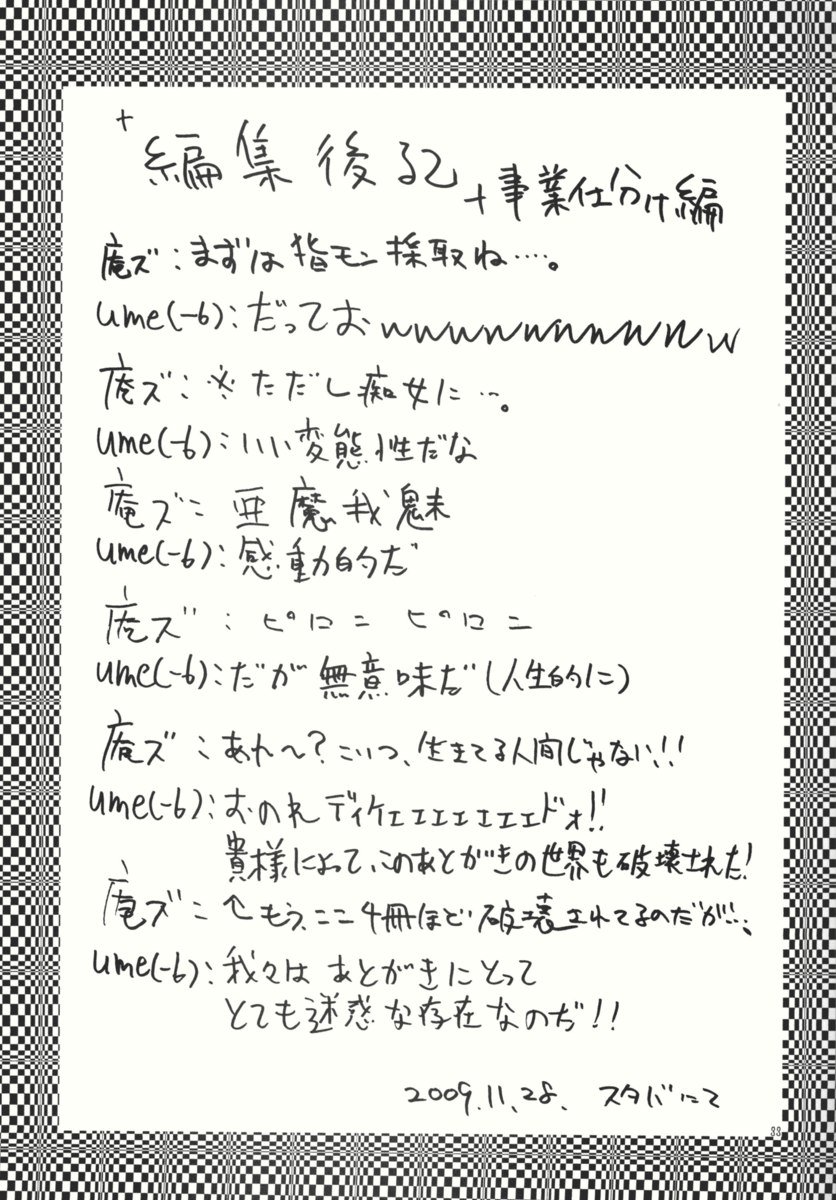 +編集後記+事業仕分け編
庵ズ:まずは指モン採取ね…。
ume(-6):だっておwwwwwwwwwww
庵ズ:※ただし痴女に…。
ume(-6):いい変態性だな
庵ズ:亜魔我魅
ume(-6):感動的だ
庵ズ:ピロニ ピロニ
ume(-6):だが無意味だ(人生的に)
庵ズ:あれ〜?こいつ、生きてる人間じゃない!!
ume(-6):おのれディケェェェェェェェドォ!!
貴様によって、このあとがきの世界も破壊された!
庵ズ:↑もう、ここ4冊ほど破壊されてるのだが…。
ume(-6):我々は あとがきにとって
とても迷惑な存在なのだ!!
2009.11.28. スタバにて
33